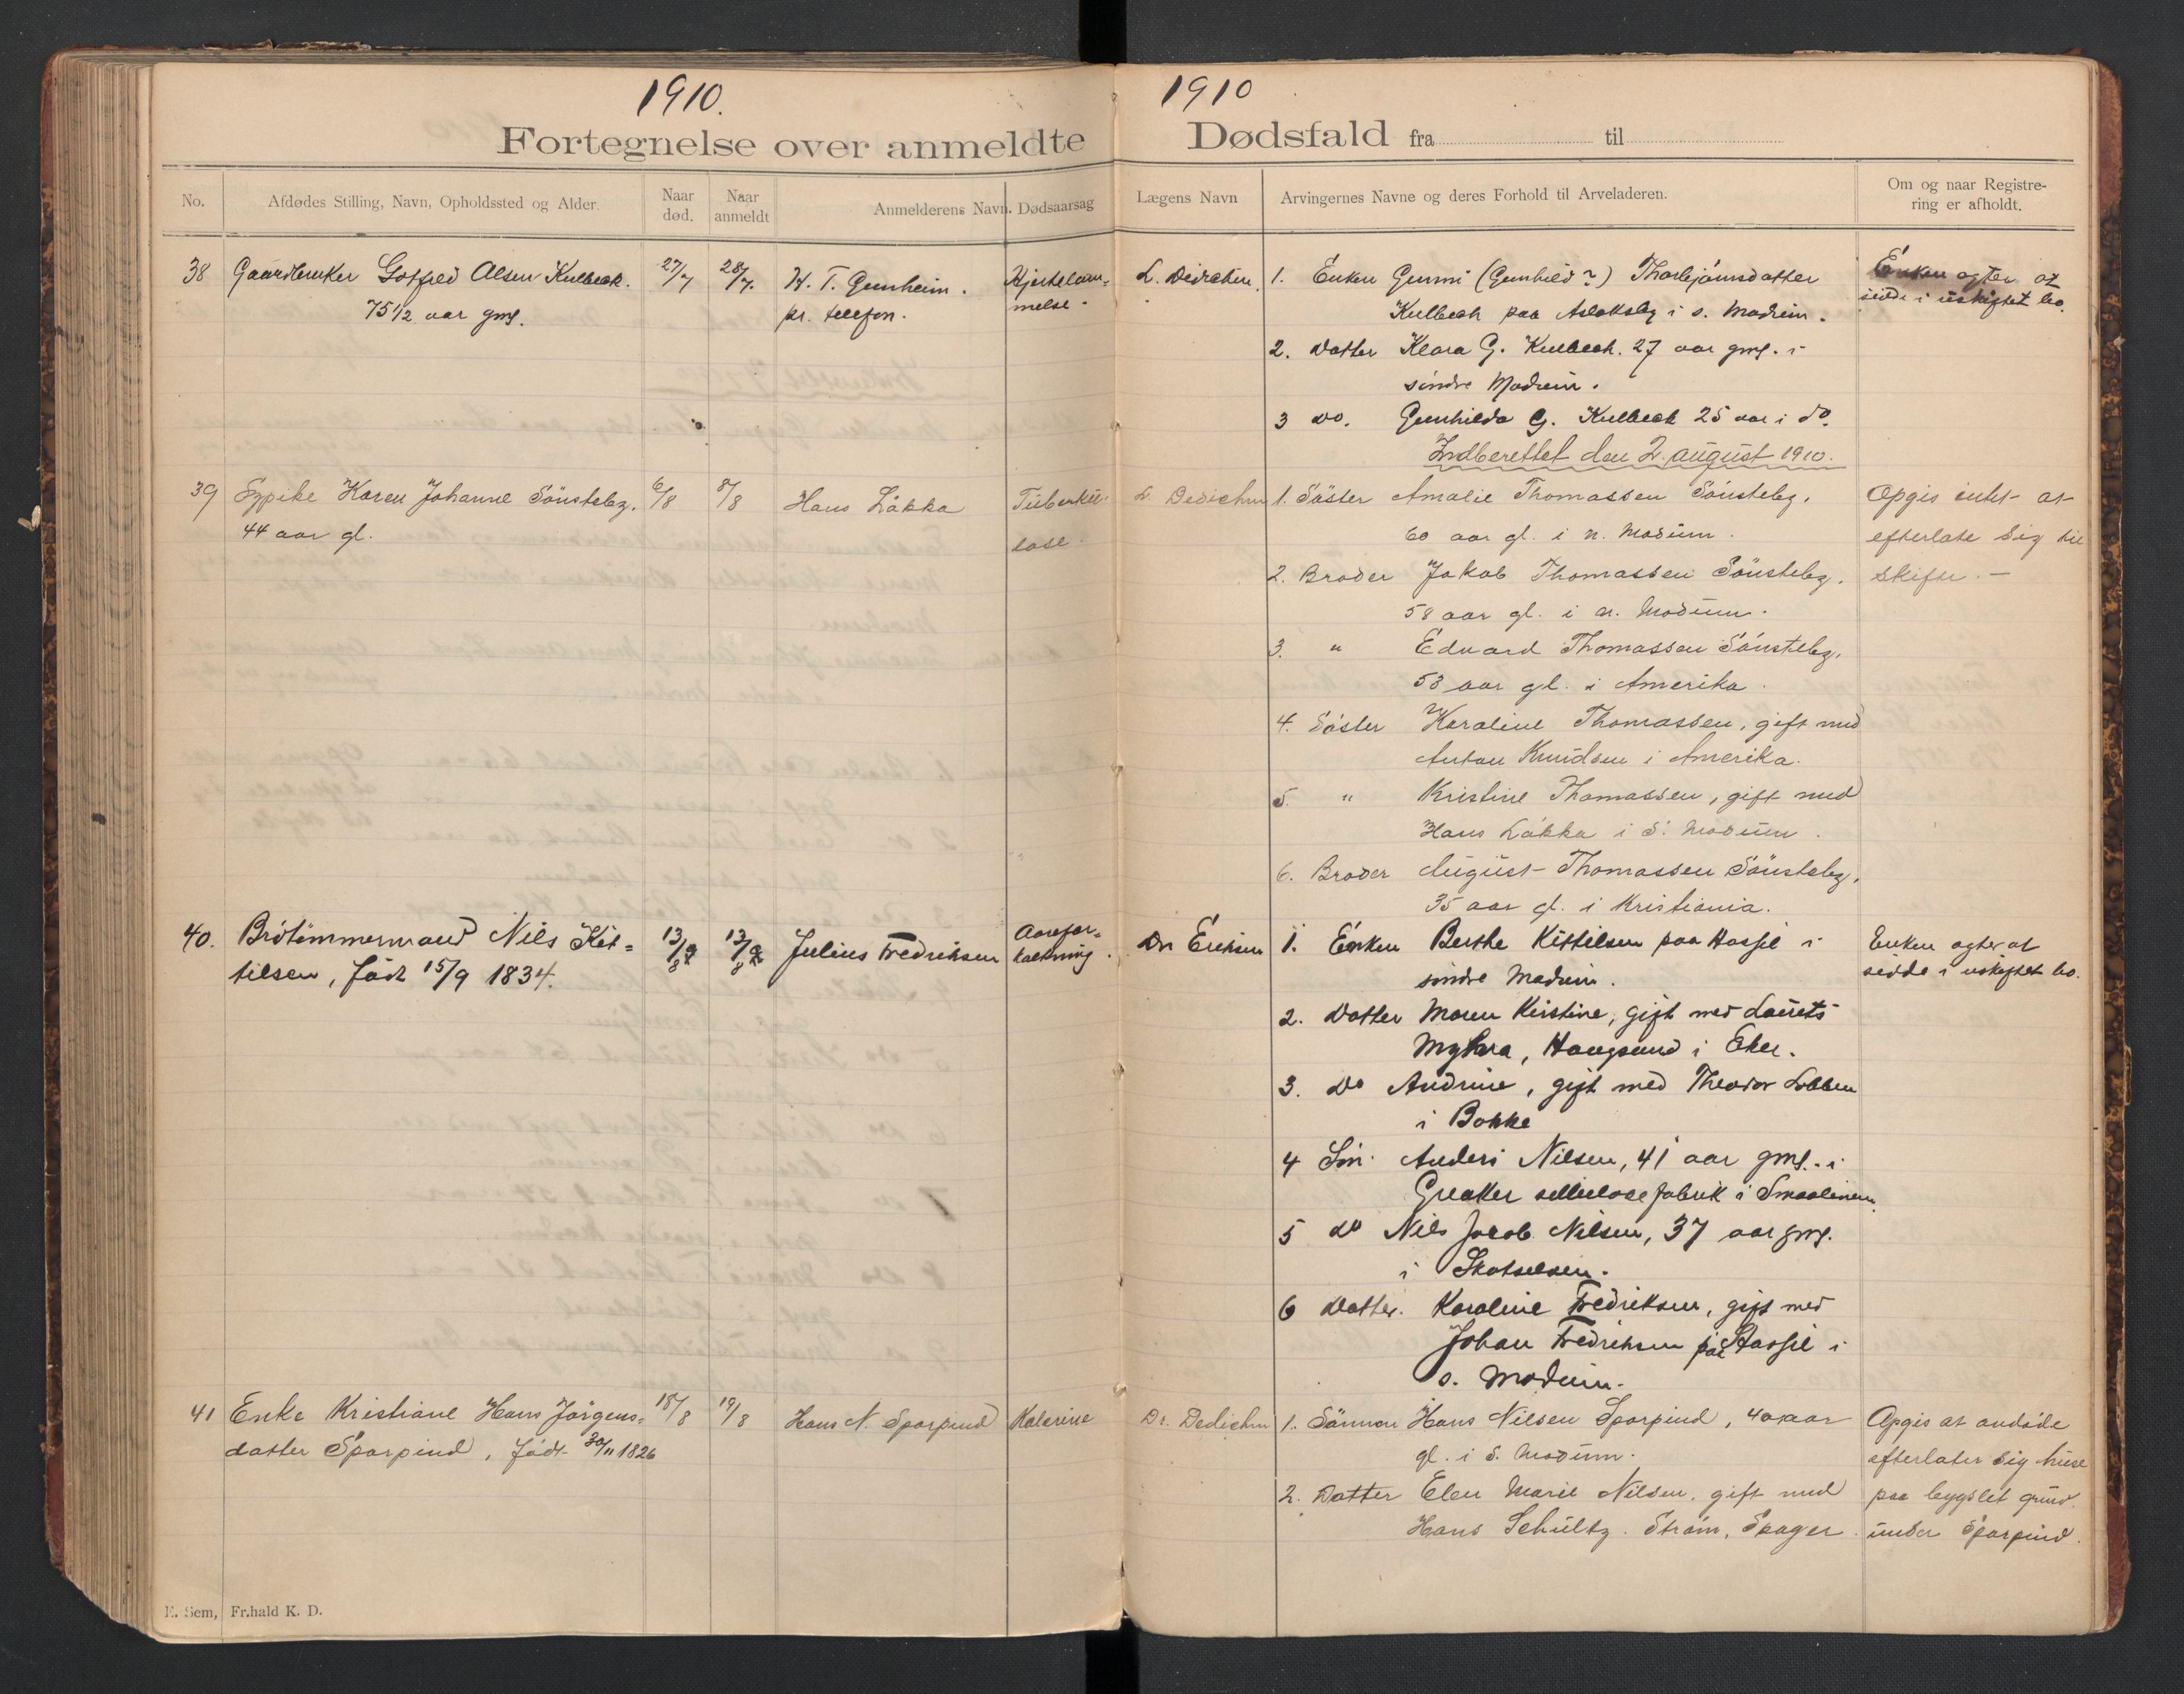 1910.
Fortegnelse over anmeldte
No.
Afdødes Stilling, Navn, Opholdssted og Alder.
Naar død.
Naar anmeldt
Anmelderens Navn.
Dødsaarsag
38 Gaardbruker Gotfred Olsen Kulbeck. 27/7 28/7. H. T. Gunheim. Hjertelam-
75 1/2 aar gml. pr. telefon. melse.
39 Sypike Karen Johanne Sönsteby. 6/8 8/8 Hans Låkka Tuberku-
44 aar gl. lose.
40. Brötömmermand Nils Kit= 13/8 13/8 Julius Fredriksen Aarefor-
tilsen, född 15/9 1834. kalkning.
41 Enke Kristiane Hans Jörgens= 18/8 19/8 Hans N. Sparpind Katerine
datter Sparpind, född 30/11 1826
E. Sem, Fr.hald K. D.
1910
Dødsfald fra til
Lægens Navn
Arvingernes Navne og deres Forhold til Arveladeren.
Om og naar Registre-
ring er afholdt.
L. Dedichen. 1. Enken Gunni (Gunhild?) Thorbjörnsdatter Enken agter at
Kulbeck paa Aslaksby i s. Modum. sidde i uskiftet bo.
2. Datter Klara G. Kulbeck. 27 aar gml. i
söndre Modum.
3 do. Gunhilda G. Kulbeck 25 aar i do.
Indberettet den 2. august 1910.
L. Dedichen 1. Söster Amalie Thomassen Sönsteby, Opgis intet at
60 aar gl. i n. Modum. efterlate sig til
2. Broder Jakob Thomassen Sönsteby, skifte. -
58 aar gl. i n. Modum.
3. " Edvard Thomassen Sönsteby,
53 aar gl. i Amerika.
4. Söster Karoline Thomassen, gift med
Anton Knudsen i Amerika.
5. " Kristine Thomassen, gift med
Hans Låkka i S. Modum.
6. Broder August Thomassen Sönsteby,
35 aar gl. i Kristiania.
Dr Erichsen 1. Enken Berthe Kittilsen paa Hassel i Enken agter at
söndre Modum. sidde i uskiftet bo.
2. Datter Maren Kirstine, gift med Laurets
Myhra, Haugsund i Eker.
3. do Andrine, gift med Theodor Lobben
i Bakke
4 Sön. Anders Nilsen, 41 aar gml. i
Greaker sellulosefabrik i Smaalenene.
5 do Nils Jacob Nilsen, 37 aar gml.
i Skotselven.
6 Datter. Karoline Fredriksen, gift med
Johan Fredriksen paa Hassel i
s. Modum.
Dr. Dedichen 1. Sönnen Hans Nilsen Sparpind, 40 aar Opgis at avdöde
gl. i S. Modum. efterlater sig huse
2. Datter Elen Marie Nilsen, gift med paa bygslet grund
Hans Schultz. Ström, Skoger. under Sparpind.